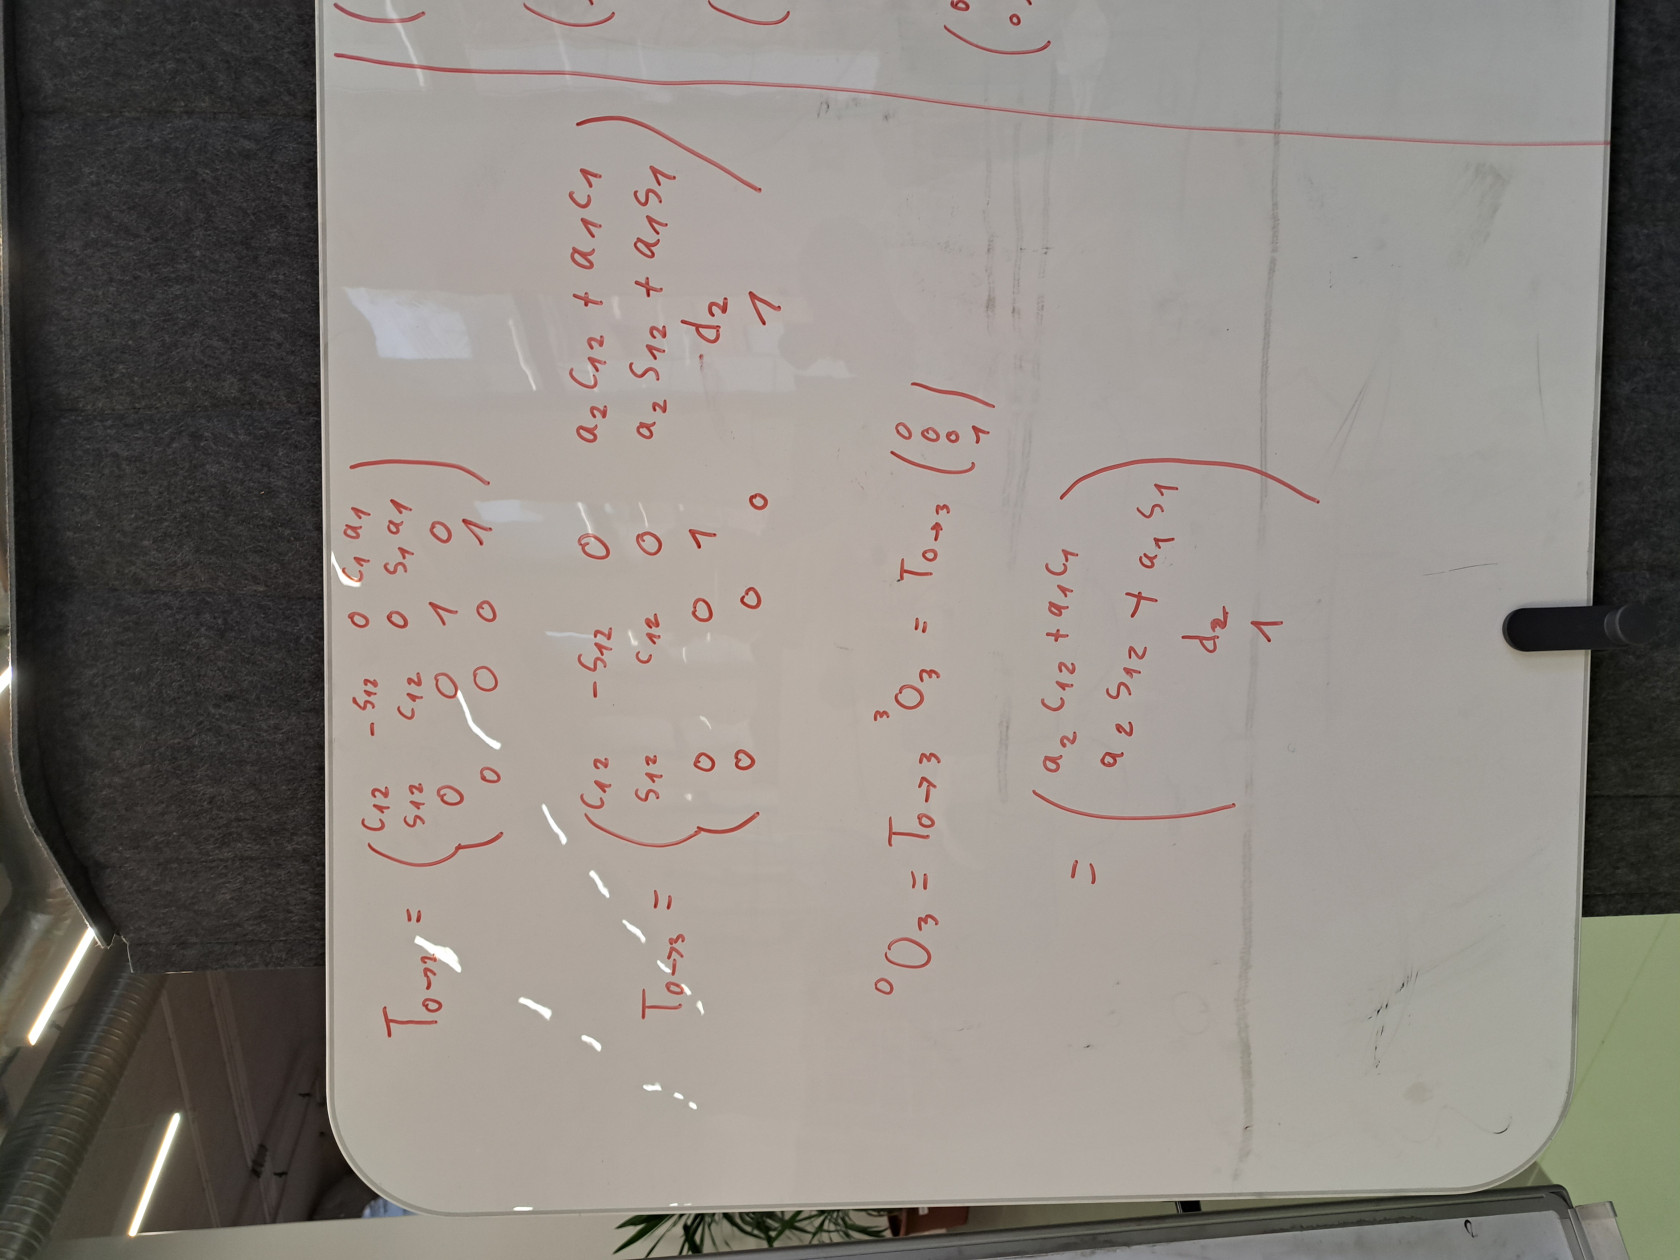 T₀→₂ = ( C₁₂ -S₁₂ 0 C₁a₁
S₁₂ C₁₂ 0 S₁a₁
0 0 1 0
0 0 0 1 )
T₀→₃ = ( C₁₂ -S₁₂ 0 a₂C₁₂ + a₁C₁
S₁₂ C₁₂ 0 a₂S₁₂ + a₁S₁
0 0 1 d₂
0 0 0 1 )
⁰O₃ = T₀→₃ ³O₃ = T₀→₃ ( 0
0
0
1 )
= ( a₂C₁₂ + a₁C₁
a₂S₁₂ + a₁S₁
d₂
1 )